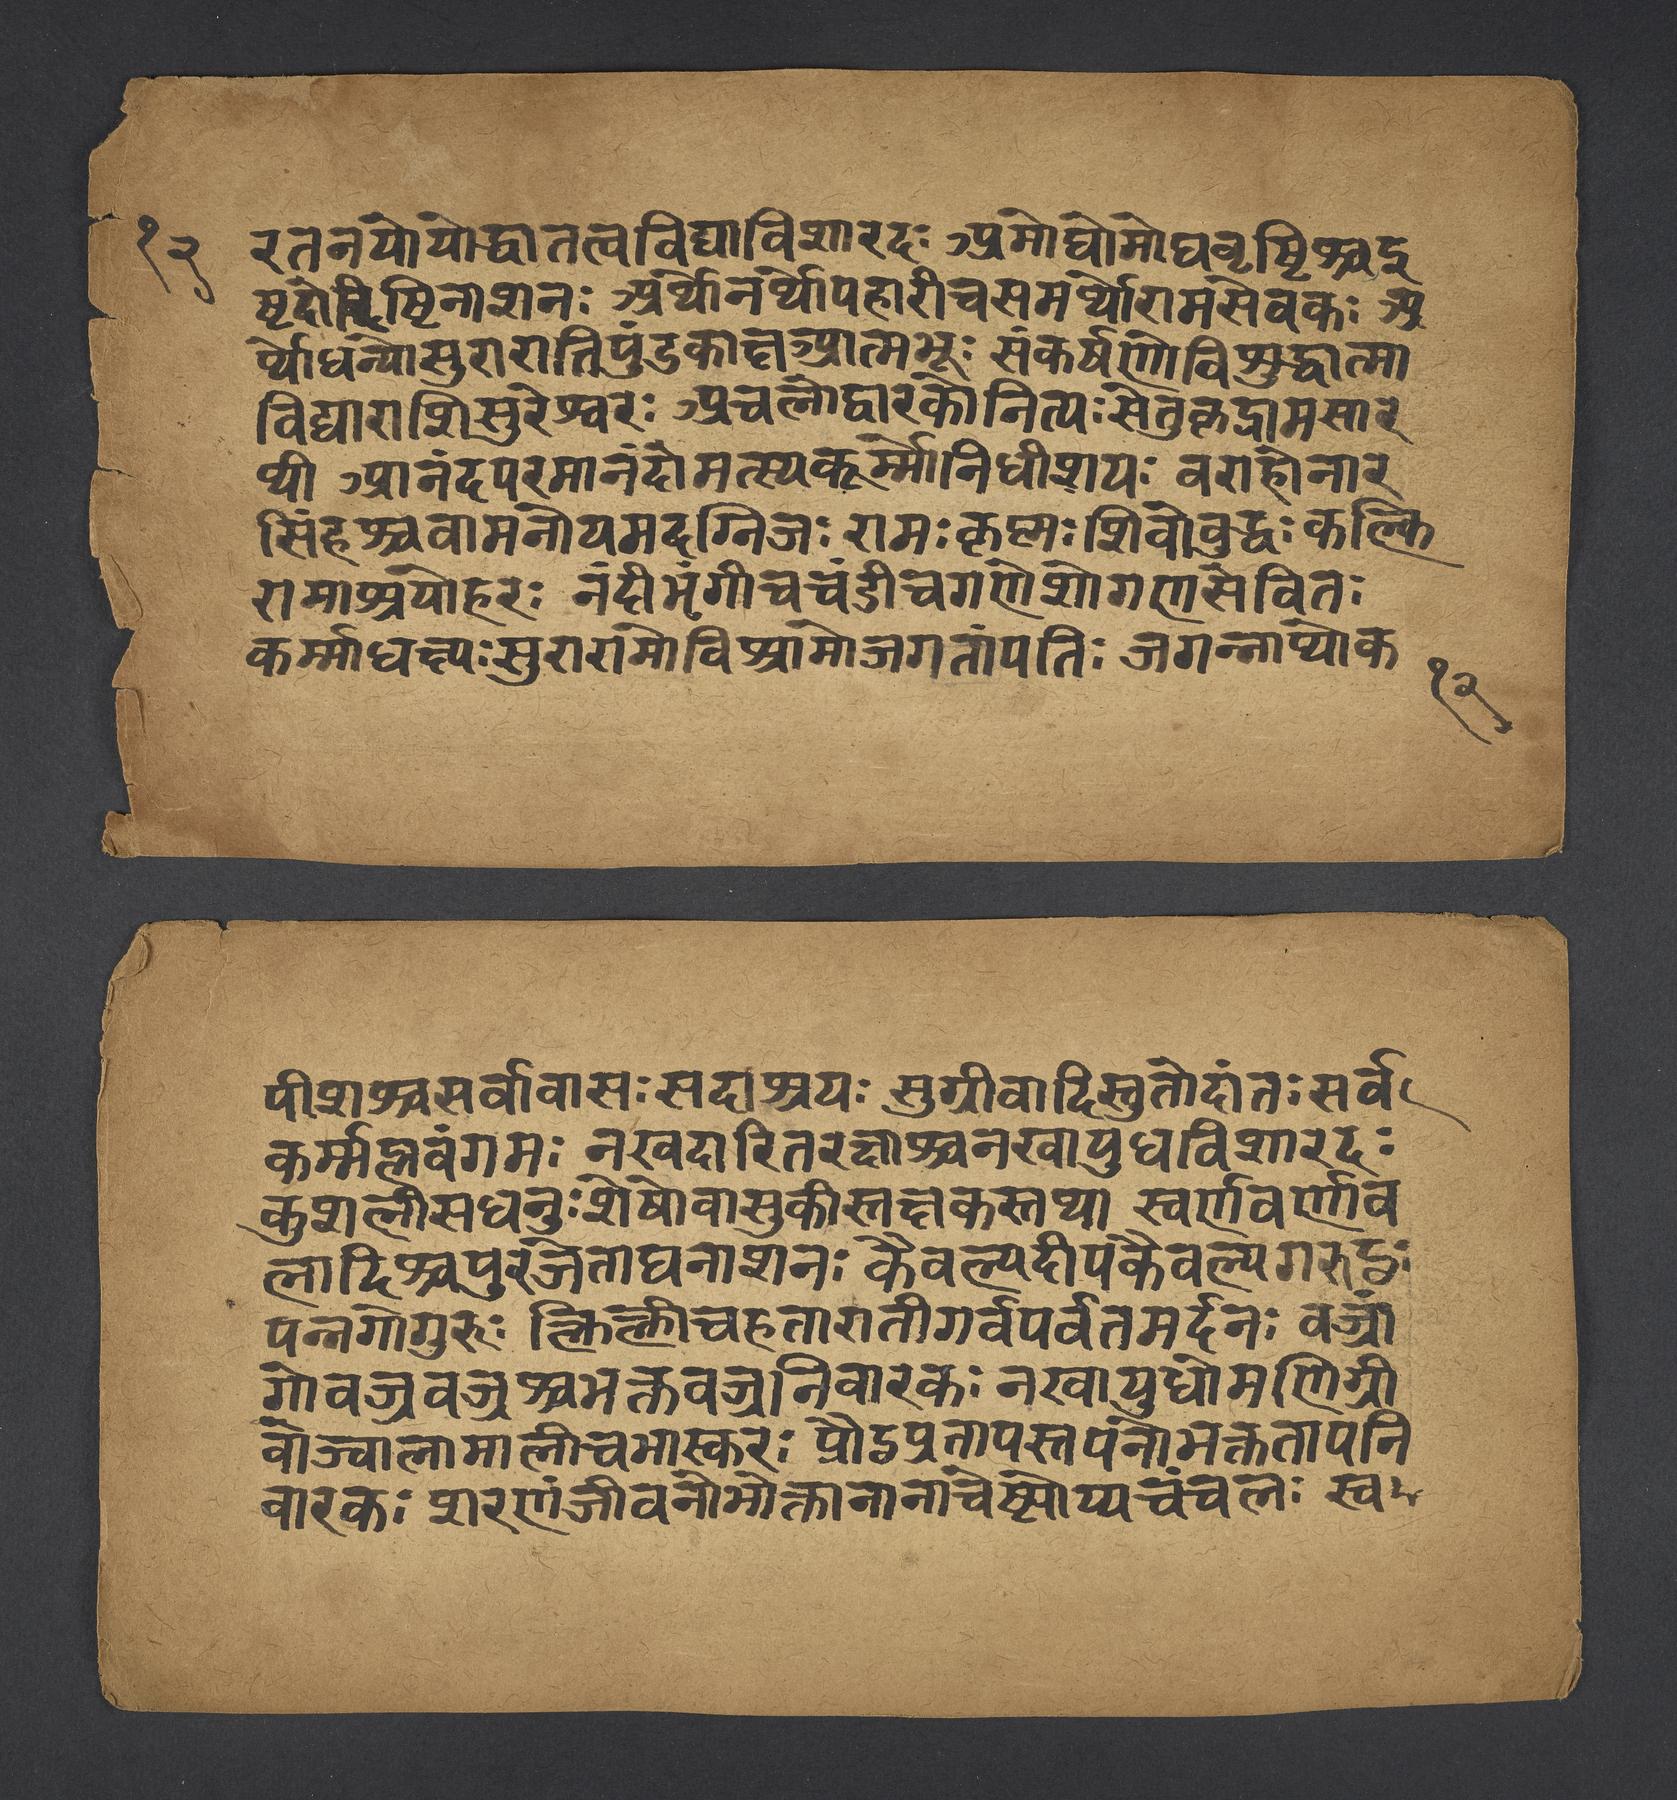 १२ रतनयोयोद्धातत्वविद्याविशारदः अमोघोमोघवृष्टिश्चदु
ष्टदोरिष्टिनाशनः अर्थोनर्थोपहारीचसमर्थोरामसेवकः अ
र्घ्योधन्योसुरारातिपुंडकाक्षआत्मभूः संकर्षणोविशुद्धात्मा
विद्याराशिसुरेश्वरः अचलोद्वारकोनित्यःसेतुकृद्रामसार
थी आनंदपरमानंदोमत्स्यकूर्म्मोनिधीशयः वराहोनार
सिंहश्चवामनोयमदग्निजः रामःकृष्णःशिवोबुद्धःकल्कि
रामाश्रयोहरः नंदीभृंगीचचंडीचगणेशोगणसेवितः
कर्म्माध्यक्षःसुरारामोविश्रामोजगतांपतिः जगन्नाथोक १२
पीशश्चसर्वावासःसदाश्रयः सुग्रीवादिस्तुतोदांतःसर्व
कर्म्मप्लवंगमः नखदारितरक्षाश्चनखायुधविशारदः
कुशलीसधनुःशेषोवासुकीस्तक्षकस्तथा स्वर्णवर्णव
लादिश्चपुरंजेताघनाशनः कैवल्यदीपंकैवल्यगरुडः
पन्नगोगुरुः क्लिक्लीचहतारातीगर्वपर्वतमर्दनः वज्रां
गोवज्रवज्रश्चभक्तवज्रनिवारकः नखायुधोमणिग्री
वोज्वालामालीचभास्करः प्रौढप्रतापस्तपनोभक्ततापनि
वारकः शरणंजीवनोभोक्तानानांचेष्टोप्यचंचलः स्व